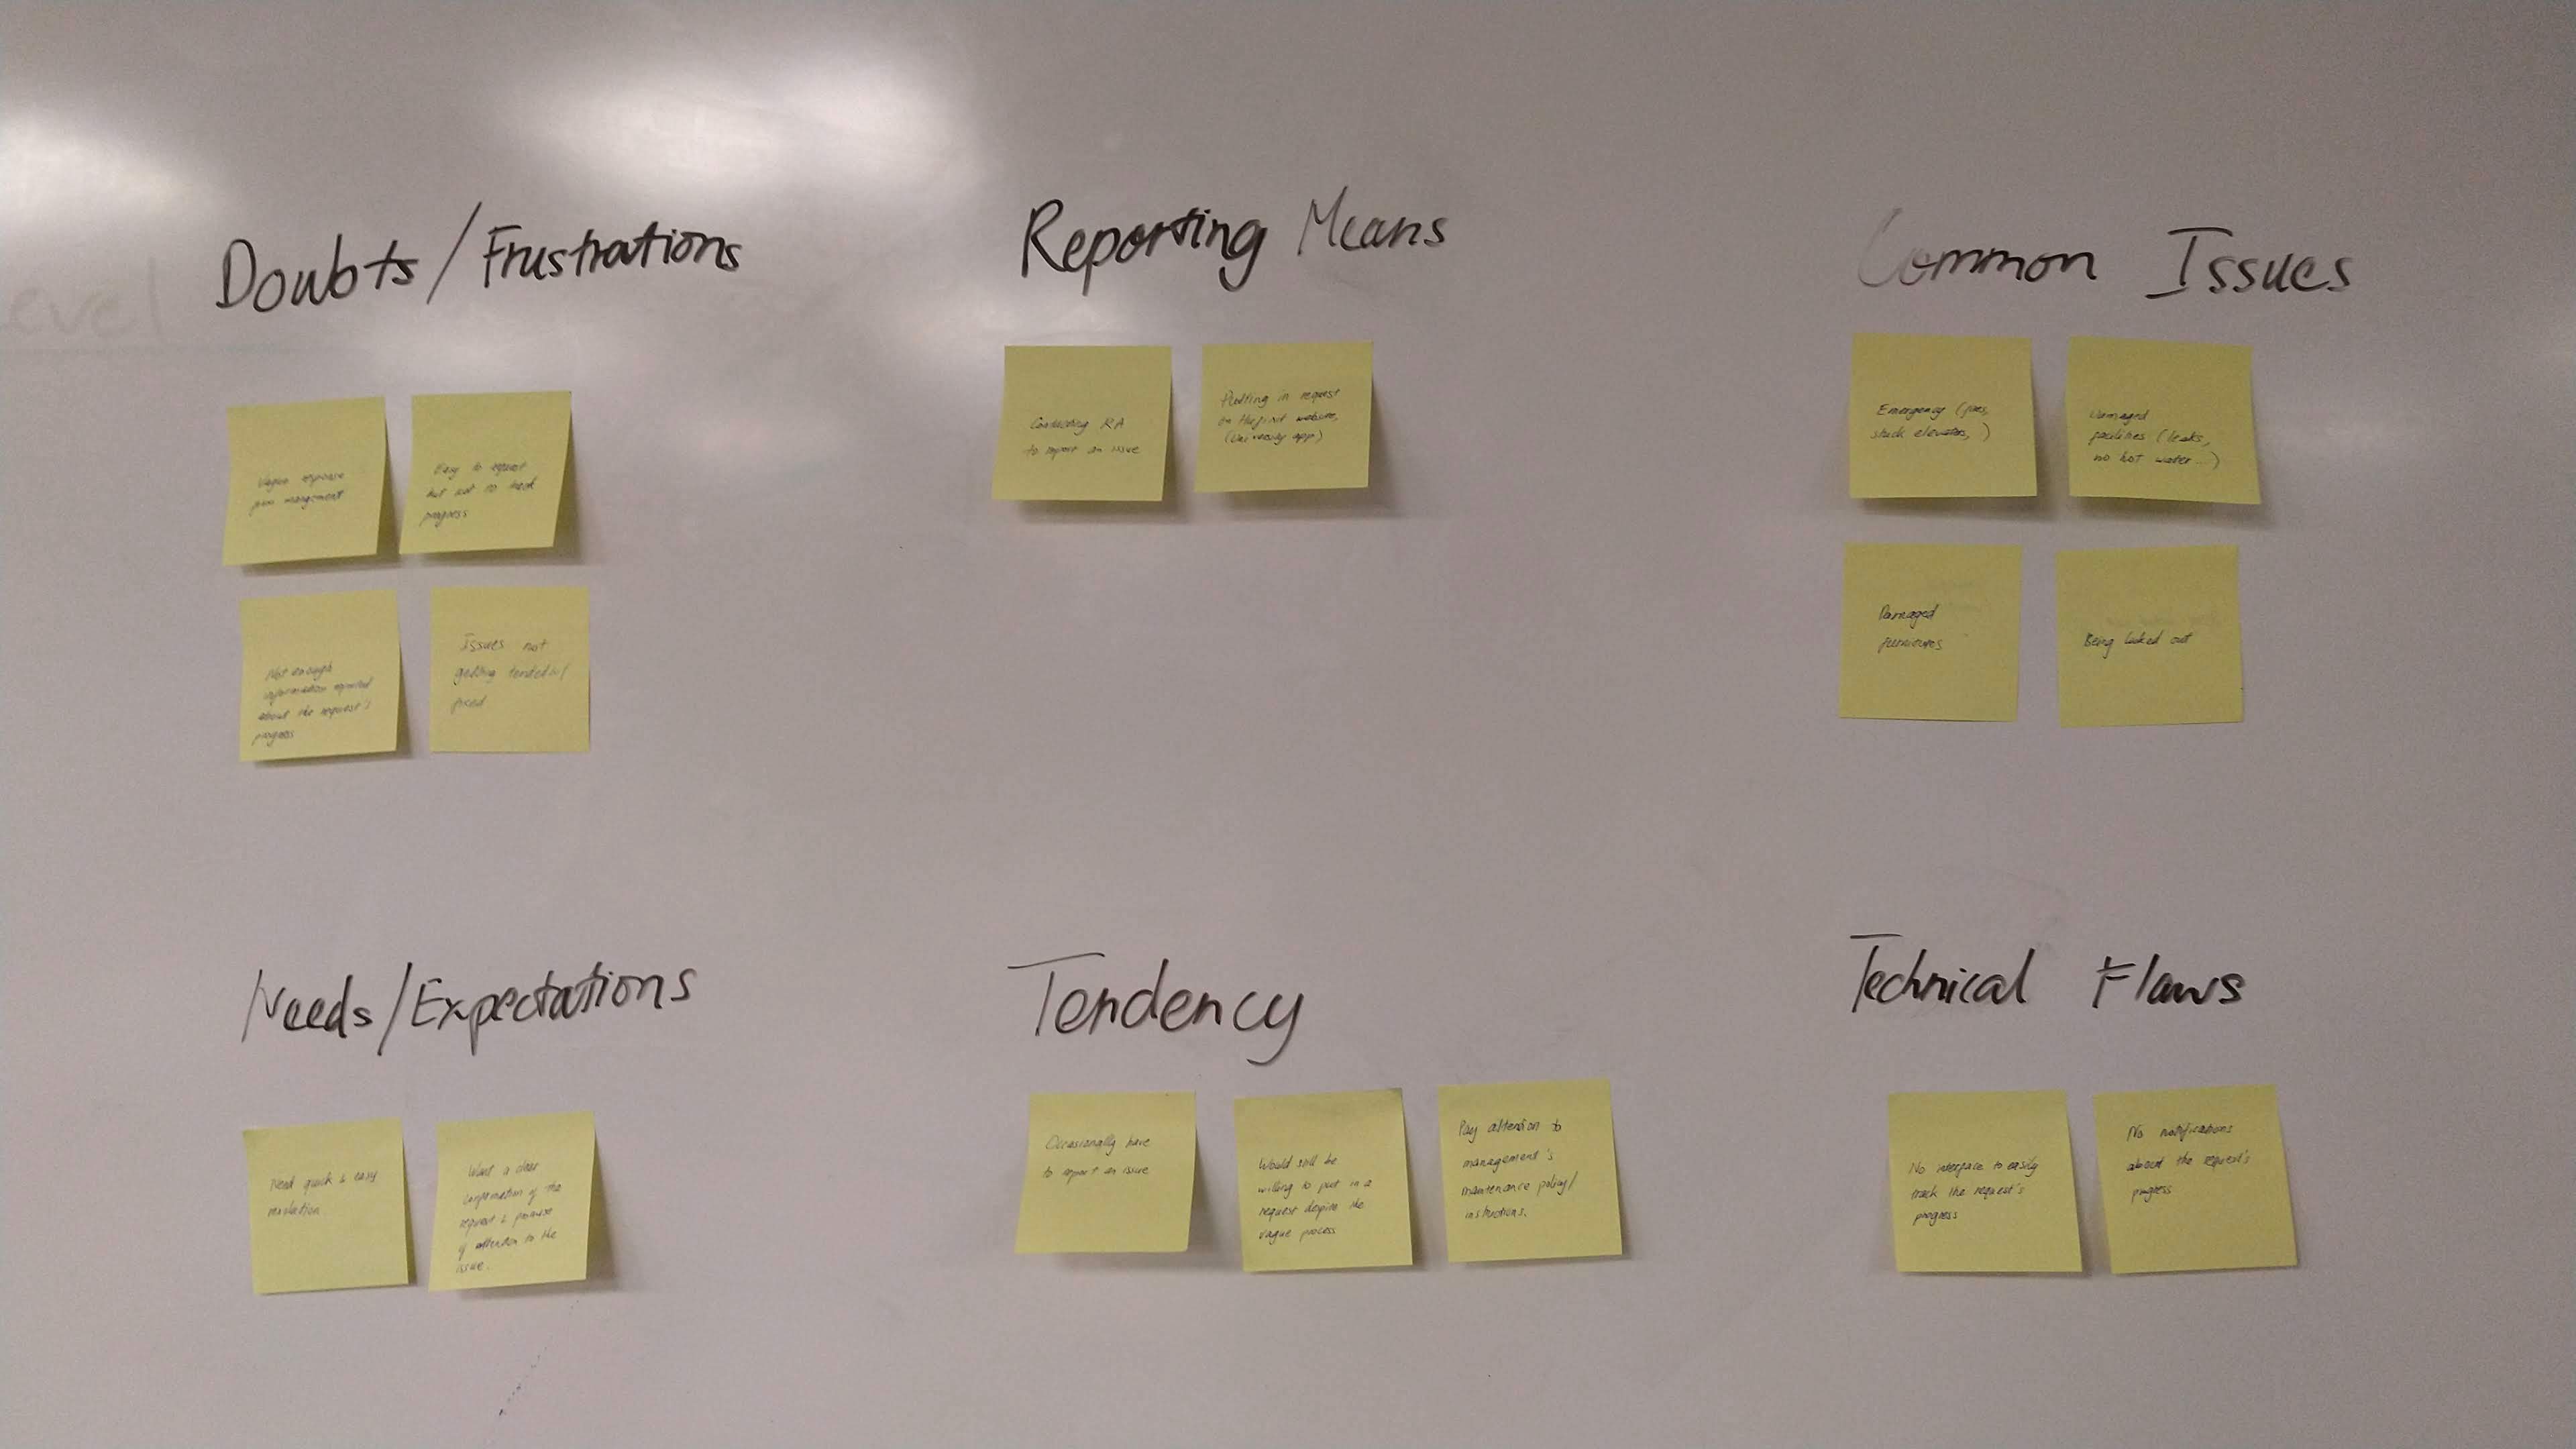 evel
Doubts/Frustrations
Vague response
from mangement
Easy to request
but not to track
progress
Not enough
information reported
about the request's
progress
Issues not
getting tended to/
fixed
Reporting Means
Contacting RA
to report an issue
Putting in request
on website,
(University app)
Common Issues
Emergency (fires,
stuck elevator, )
Damaged
facilities (leaks,
no hot water...)
Damaged
furnitures
Being locked out
Needs/Expectations
Need quick & easy
resolution
Want a clear
confirmation of the
request & promise
of attention to the
issue.
Tendency
Occasionally have
to report an issue
Would still be
willing to put in a
request despite the
vague process
Pay attention to
management's
maintenance policy/
instructions.
Technical Flaws
No interface to easily
track the request's
progress
No notifications
about the request's
progress